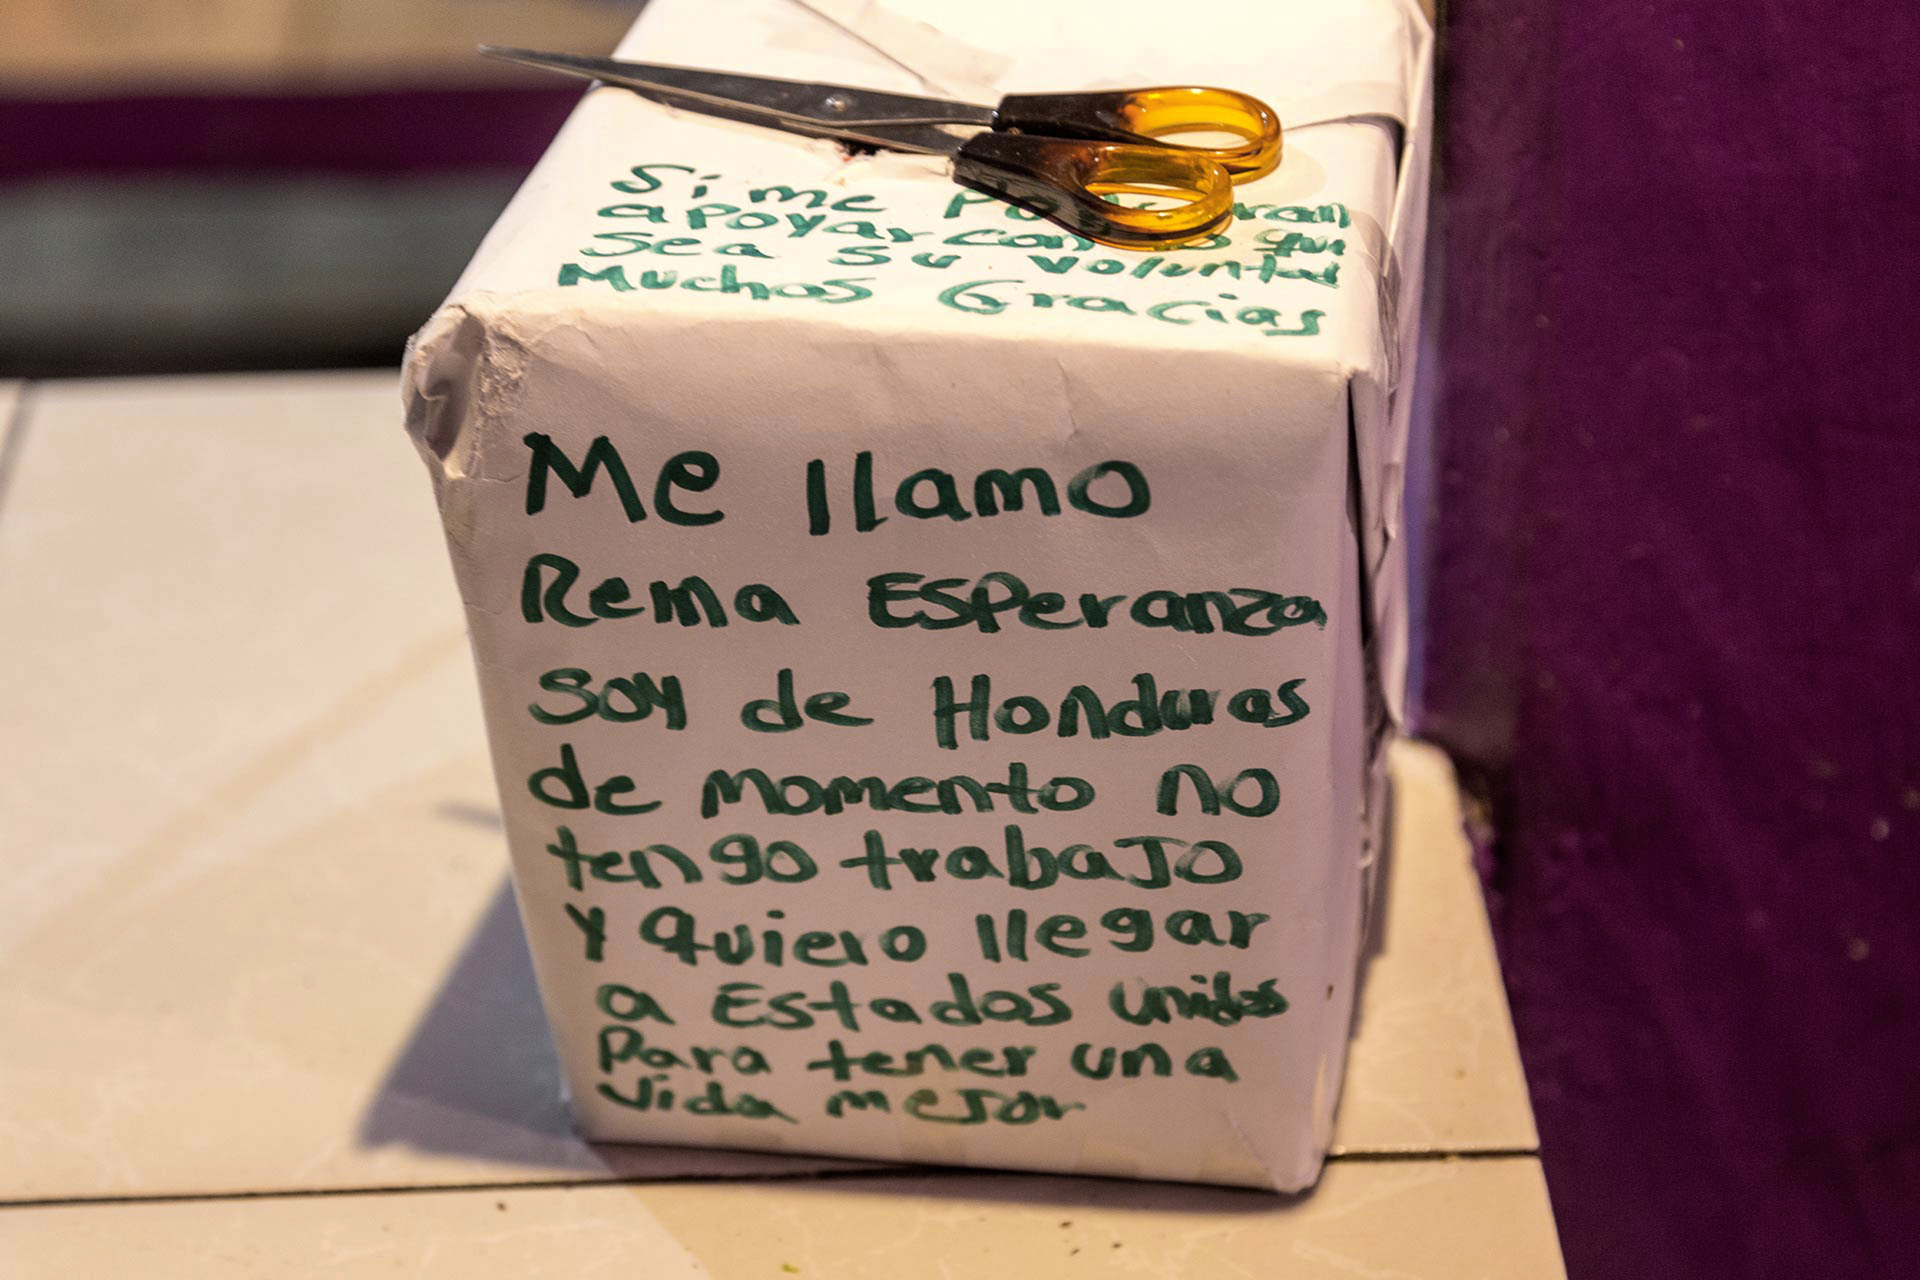 Si me
apoyar con que
sea su voluntad
Muchas Gracias
Me llamo
Rema Esperanza
Soy de Honduras
de momento no
tengo trabaJo
Y quiero llegar
a Estados unidos
Para tener una
vida meJor